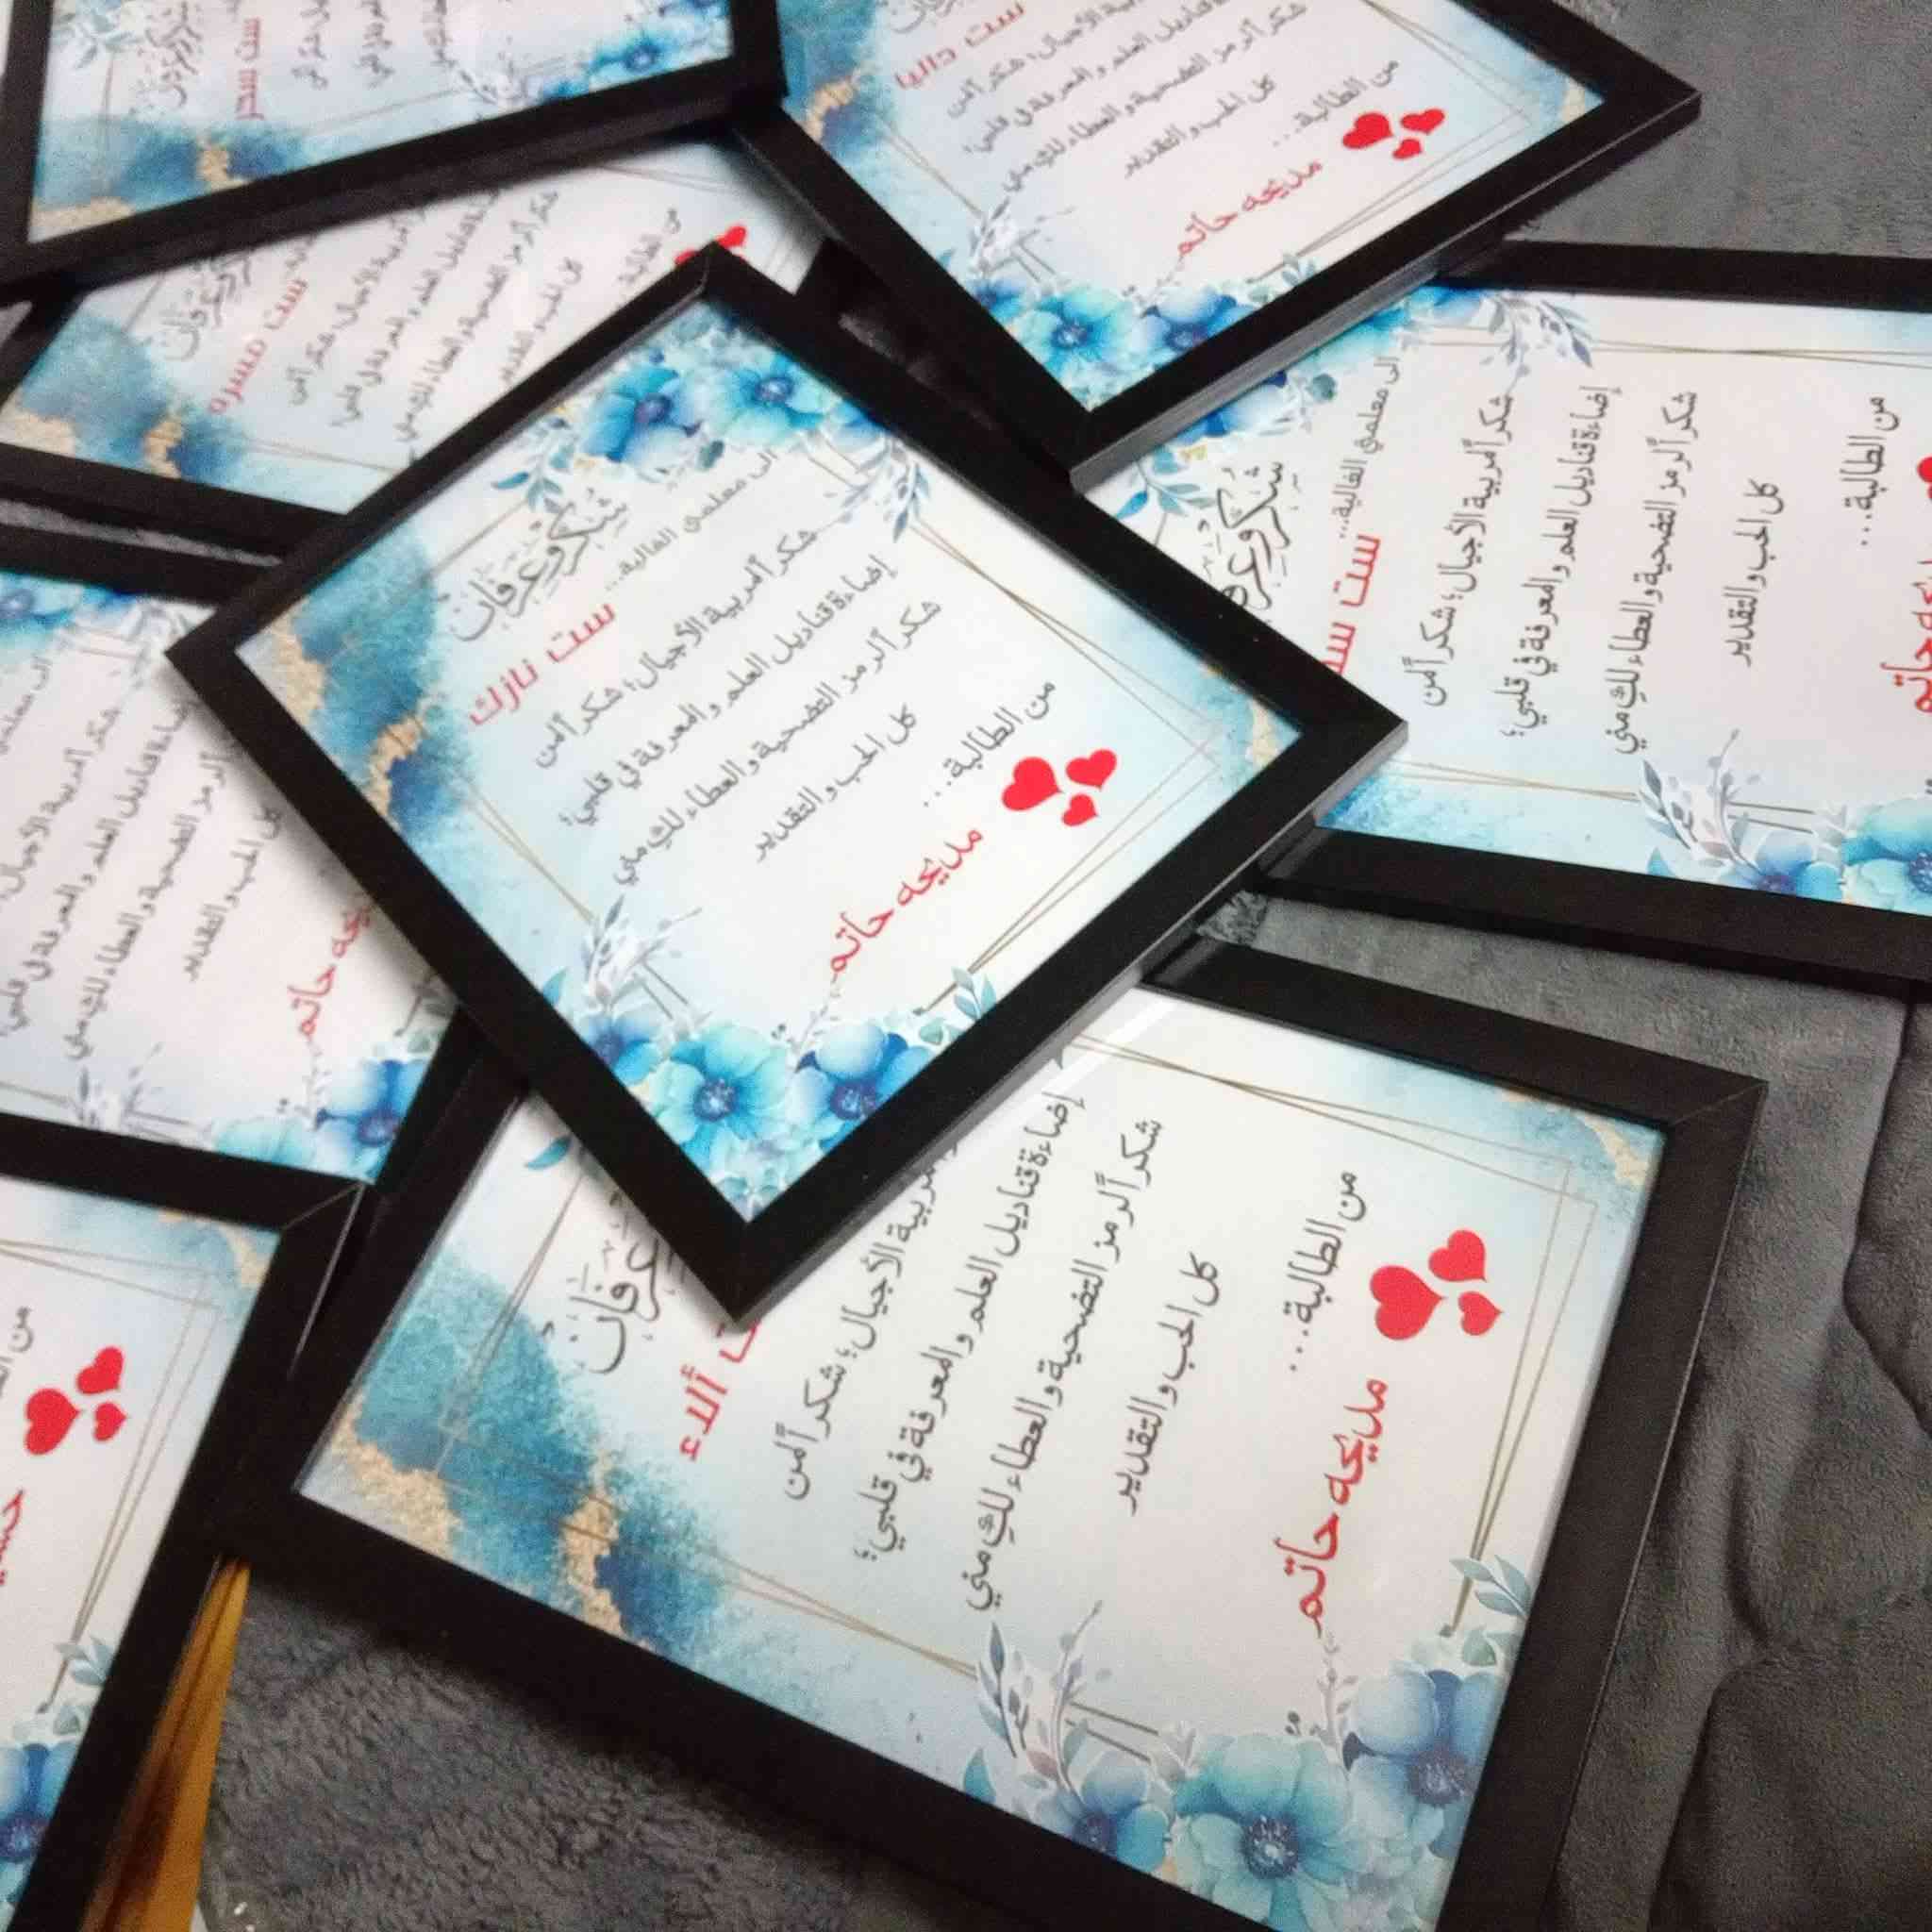 ست سحر
ست داليا
شكراً لمربية الأجيال؛ شكراً لمن
إضاءة قناديل العلم والمعرفة في قلبي؛
شكراً لرمز التضحية والعطاء لكِ مني
كل الحب والتقدير
من الطالبة...
مديحه حاتم
ست مسره
شكراً لمربية الأجيال؛ شكراً لمن
إضاءة قناديل العلم والمعرفة في قلبي؛
شكراً لرمز التضحية والعطاء لكِ مني
كل الحب والتقدير
شكر وعرفان
الى معلمتي الغالية...
ست نازك
شكراً لمربية الأجيال؛ شكراً لمن
إضاءة قناديل العلم والمعرفة في قلبي؛
شكراً لرمز التضحية والعطاء لكِ مني
كل الحب والتقدير
من الطالبة...
مديحه حاتم
الى معلمتي الغالية...
ست
شكراً لمربية الأجيال؛ شكراً لمن
إضاءة قناديل العلم والمعرفة في قلبي؛
شكراً لرمز التضحية والعطاء لكِ مني
كل الحب والتقدير
من الطالبة...
حاتم
الى معلمتي
شكراً لمربية الأجيال؛
إضاءة قناديل العلم والمعرفة في قلبي؛
لرمز التضحية والعطاء لكِ مني
كل الحب والتقدير
حاتم
وعرفان
ألاء
لمربية الأجيال؛ شكراً لمن
إضاءة قناديل العلم والمعرفة في قلبي؛
شكراً لرمز التضحية والعطاء لكِ مني
كل الحب والتقدير
من الطالبة...
مديحه حاتم
من